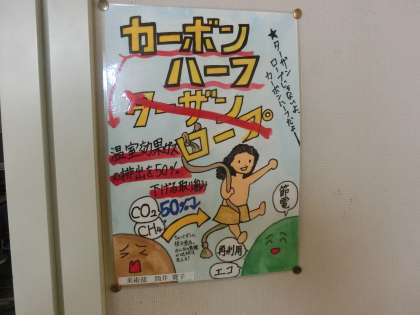 カーボン
ハーフ
ターザン
ロープ
★ターザンじゃないよ、
ロープじゃないよ、
カーボンハーフだよー
温室効果ガス
の排出を50%
下げる取り組み
CO₂
CH₄
50%↓
節電
再利用
エコ
美術部